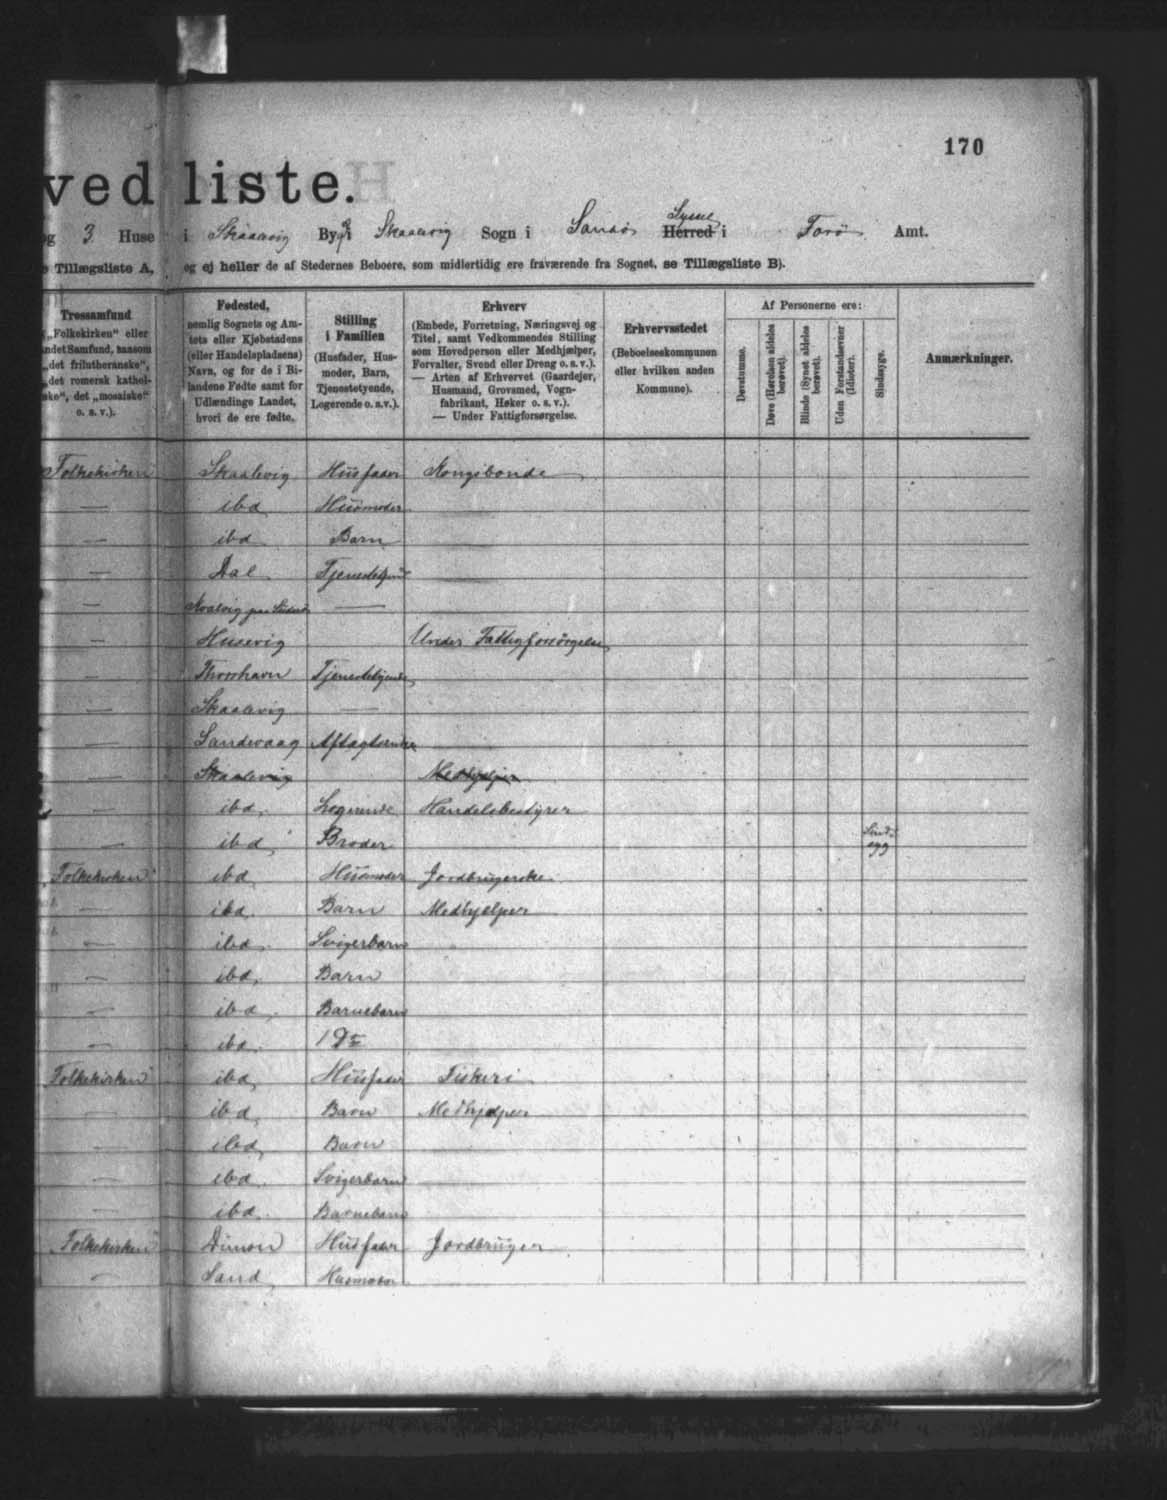 170
ved liste.
og 3 Huse i Skaalevig By i Skaalevig Sogn i Sandø Syssel Herred i Færø Amt.
e Tillægsliste A, og ej heller de af Stedernes Beboere, som midlertidig ere fraværende fra Sognet, se Tillægsliste B).
Trossamfund
(„Folkekirken“ eller
andet Samfund, saasom
„det frilutheranske“,
„det romersk kathol-
ske“, det „mosaiske“
o. s. v.).
Fødested,
nemlig Sognets og Am-
tets eller Kjøbstadens
(eller Handelspladsens)
Navn, og for de i Bi-
landene Fødte samt for
Udlændinge Landet,
hvori de ere fødte.
Stilling
i Familien
(Husfader, Hus-
moder, Barn,
Tjenestetyende,
Logerende o.s.v.).
Erhverv
(Embede, Forretning, Næringsvej og
Titel, samt Vedkommendes Stilling
som Hovedperson eller Medhjælper,
Forvalter, Svend eller Dreng o. s. v.).
— Arten af Erhvervet (Gaardejer,
Husmand, Grovsmed, Vogn-
fabrikant, Høker o. s. v.).
— Under Fattigforsørgelse.
Erhvervsstedet
(Beboelseskommunen
eller hvilken anden
Kommune).
Af Personerne ere:
Døvstumme.
Døve (Hørelsen aldeles
berøvet).
Blinde (Synet aldeles
berøvet).
Uden Forstandsevner
(Idioter).
Sindssyge.
Anmærkninger.
Folkekirken Skaalevig Husfader Kongsbonde
— ibd Husmoder
— ibd Barn
— Dal Tjenestetyende
— Kvalvig paa —
— Husevig Under Fattigforsørgelse
— Thorshavn Tjenestetyende
— Skaalevig —
— Sandevaag Aftægtsenke
— Skaalevig Medhjælper
— ibd. Logerende Handelsbestyrer
— ibd. Broder Sinds-
syg
Folkekirken ibd Husmoder Jordbrugerske
— ibd. Barn Medhjælper
— ibd. Svigerbarn
— ibd. Barn
— ibd. Barnebarn
— ibd. Do
Folkekirken ibd. Husfader Fiskeri
— ibd. Barn Medhjælper
— ibd. Barn
— ibd. Svigerbarn
— ibd. Barnebarn
Folkekirken Dimon Husfader Jordbruger
— Sand Husmoder